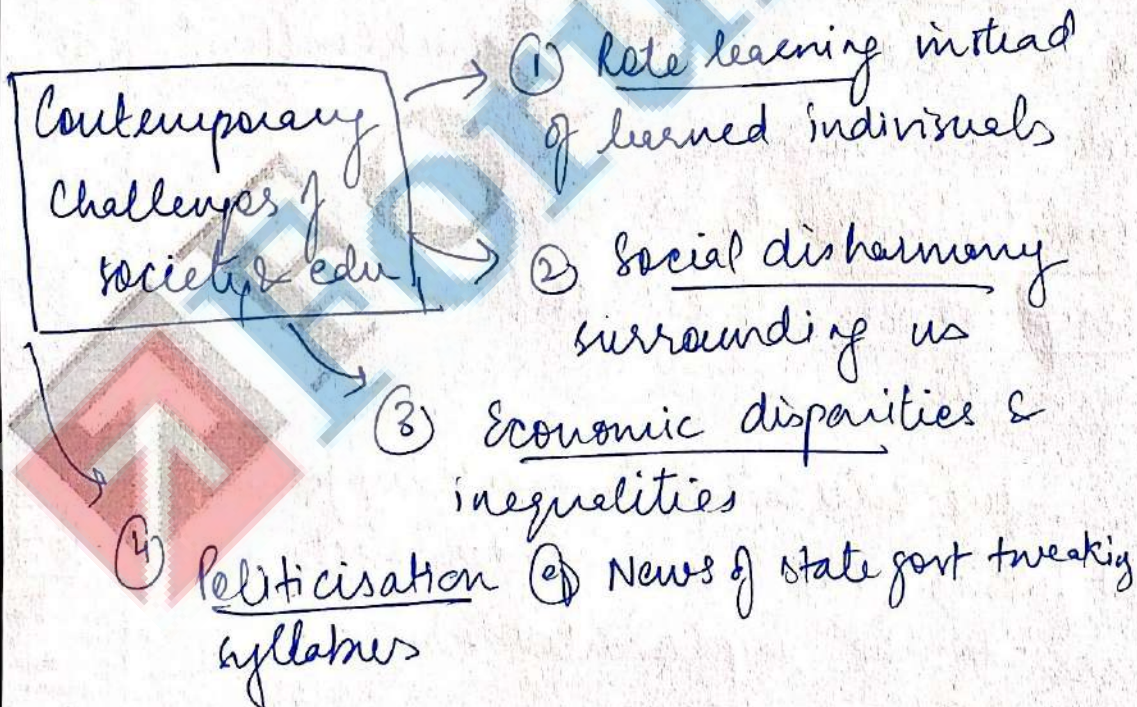 Contemporary
Challenges of
society & edu
① Rote learning instead
of learned indivisuals
② Social disharmony
surrounding us
③ Economic disparities &
inequalities
④ Politicisation eg News of state govt tweaking
syllabus